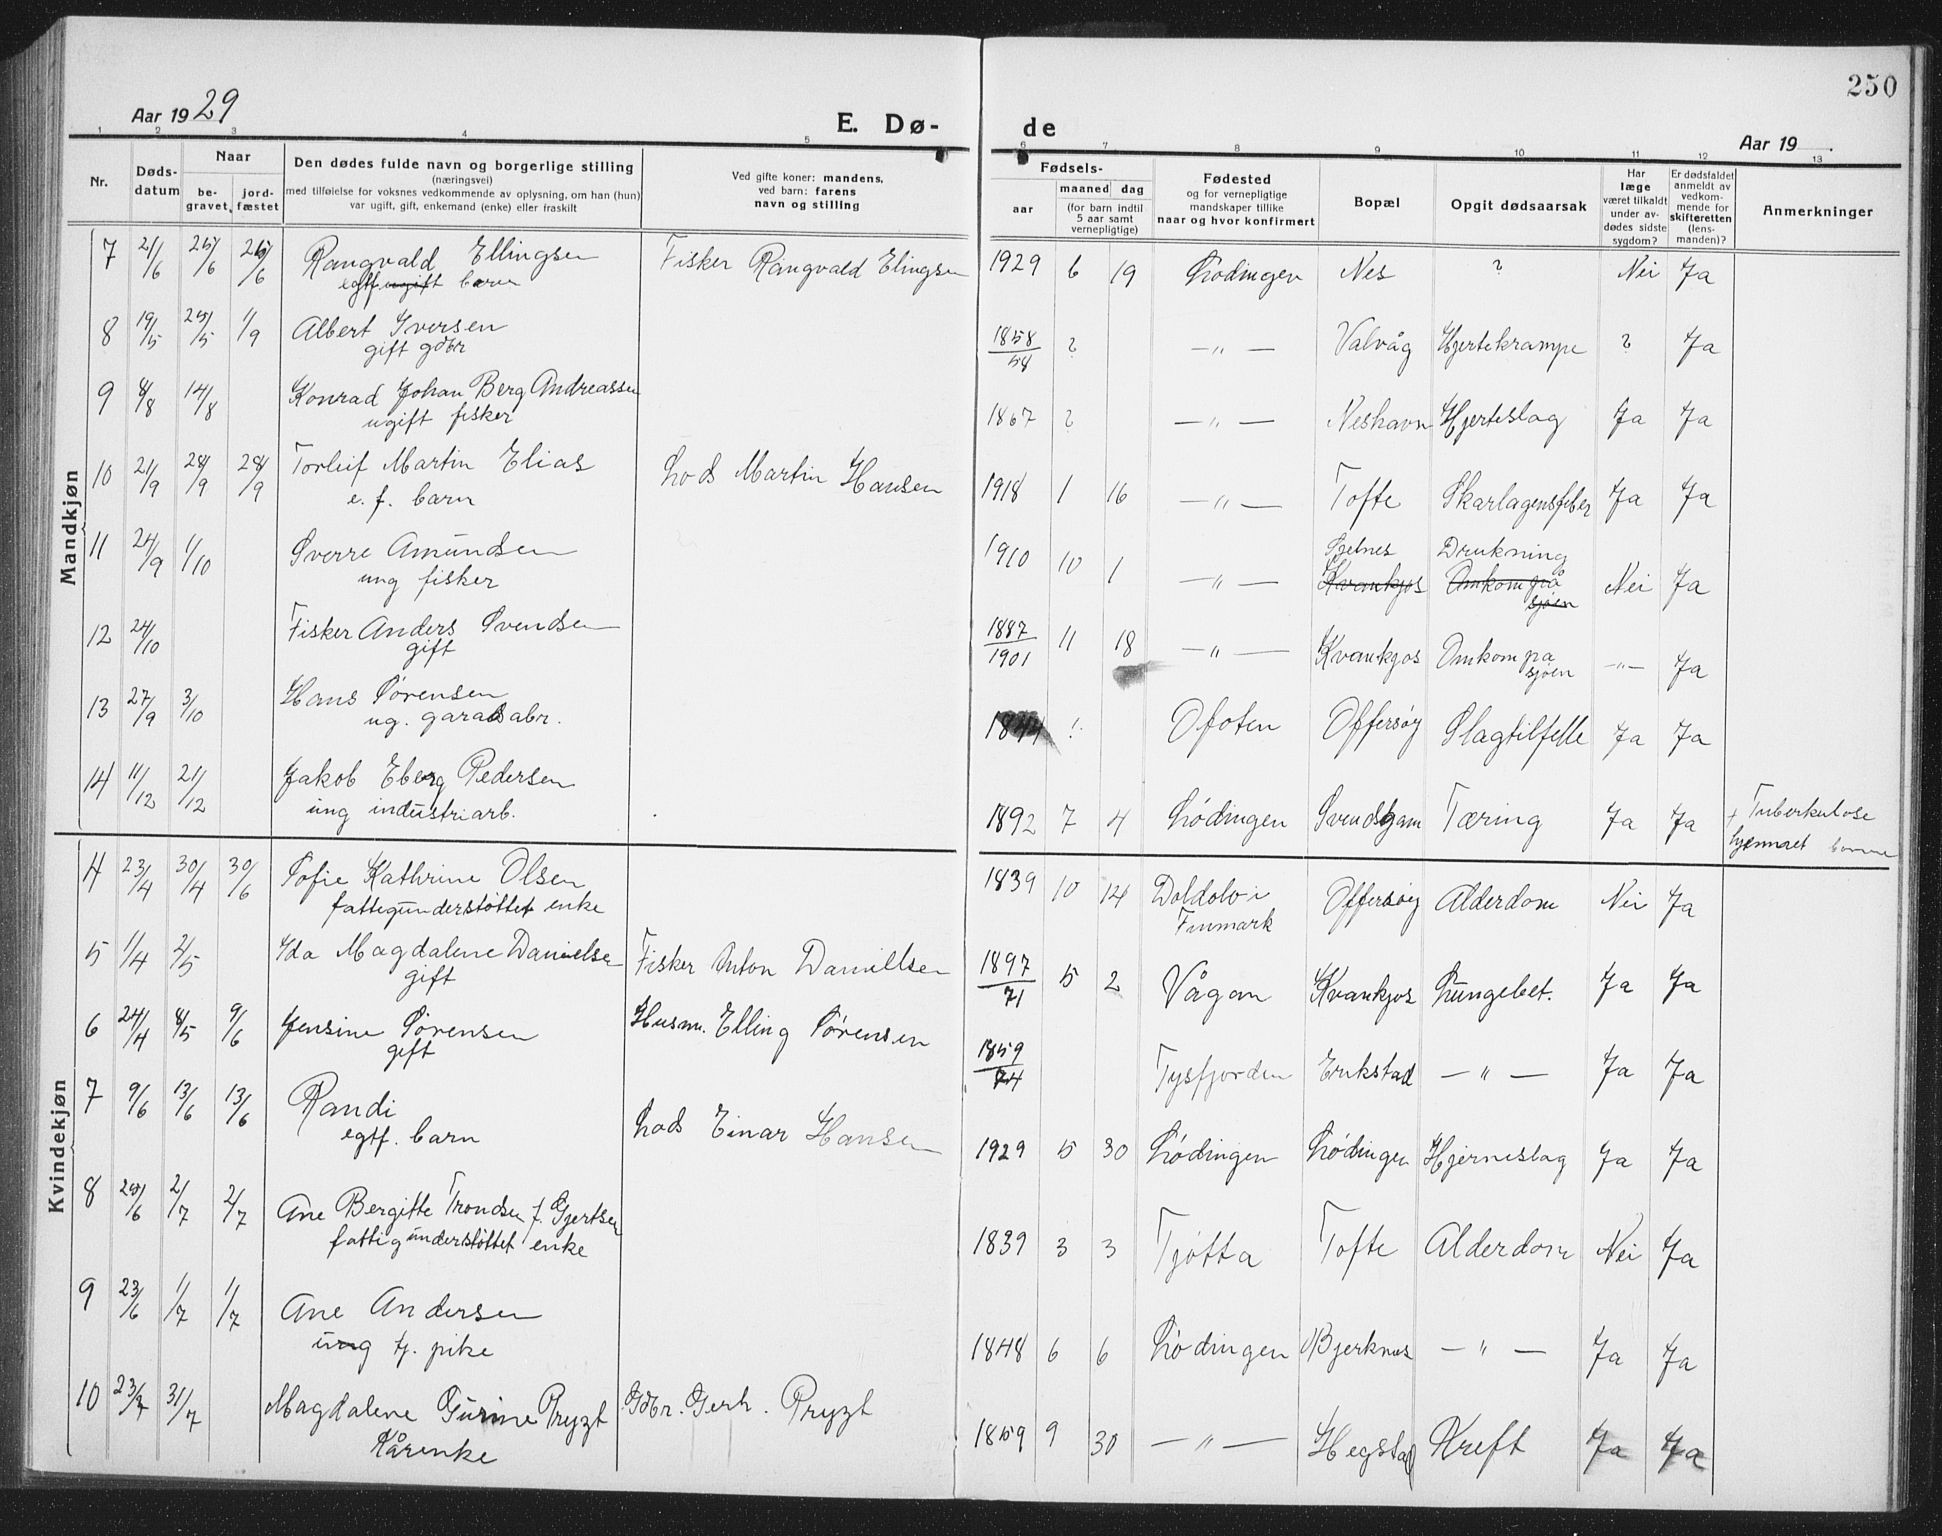 250
Aar 1929
E. Dø-
de
Aar 19
1 2 3 4 5 6 7 8 9 10 11 12 13
Nr.
Døds-
datum
Naar
be-
gravet,
jord-
fæstet
Den dødes fulde navn og borgerlige stilling
(næringsvei)
med tilføielse for voksnes vedkommende av oplysning, om han (hun)
var ugift, gift, enkemand (enke) eller fraskilt
Ved gifte koner: mandens,
ved barn: farens
navn og stilling
Fødsels-
aar
maaned dag
(for barn indtil
5 aar samt
vernepligtige)
Fødested
og for vernepligtige
mandskaper tillike
naar og hvor konfirmert
Bopæl
Opgit dødsaarsak
Har
læge
været tilkaldt
under av-
dødes sidste
sygdom?
Er dødsfaldet
anmeldt av
vedkom-
mende for
skifteretten
(lens-
manden)?
Anmerkninger
Mandkjøn
7 21/6 25/6 26/6 Rangvald Ellingsen Fisker Rangvald Elingsen 1929 6 19 Lødingen Nes ? Nei Ja
egtf ugift barn
8 19/5 25/5 1/9 Albert Iversen 1858/54 ? —"— Valvåg Hjertekrampe ? Ja
gift gdbr
9 8/8 14/8 Konrad Johan Berg Andreassen 1867 ? —"— Neshavn Hjerteslag Ja Ja
ugift fisker
10 21/9 28/9 28/9 Torleif Martin Elias Lods Martin Hansen 1918 1 16 —"— Tofte Skarlagensfeber Ja Ja
e. f. barn
11 24/9 1/10 Sverre Amundsen 1910 10 1 —"— Spelnes Drukning Nei Ja
ung fisker Kvankjos Omkom på
sjøen
12 24/10 Fisker Anders Svendsen 1887/1901 11 18 —"— Kvankjos Omkom på —"— Ja
gift sjøen
13 27/9 3/10 Hans Sørensen 1844 ? Ofoten Offersøy Slagtilfelle Ja Ja
ug. gardsabr.
14 11/12 21/12 Jakob Eberg Pedersen 1892 7 4 Lødingen Svendsgam Tæring Ja Ja + Tuberkulose
ung industriarb. hjemmet
Kvindekjøn
4 23/4 30/4 30/6 Sofie Kathrine Olsen 1839 10 14 Doldolv i Offersøy Alderdom Nei Ja
fattigunderstøttet enke Finmark
5 1/4 2/5 Ida Magdalene Danielsen Fisker Anton Daniellsen 1897/71 5 2 Vågan Kvankjos Lungebet. Ja Ja
gift
6 24/4 8/5 9/6 Jensine Sørensen Husm. Elling Sørensen 1859/74 Tysfjorden Erikstad —"— Ja Ja
gift
7 9/6 13/6 13/6 Randi Lods Einar Hansen 1929 5 30 Lødingen Lødingen Hjerneslag Ja Ja
egtf. barn
8 25/6 2/7 2/7 Ane Bergitte Trondsen f. Gjertsen 1839 3 3 Tjøtta Tofte Alderdom Nei Ja
fattigunderstøttet enke
9 23/6 1/7 1/7 Ane Andersen 1848 6 6 Lødingen Bjerknes —"— Ja Ja
ung tj. pike
10 23/7 31/7 Magdalene Gurine Pryzt Gdbr. Gerh. Pryzt 1859 9 30 —"— Hegstad Kreft Ja Ja
Kårenke